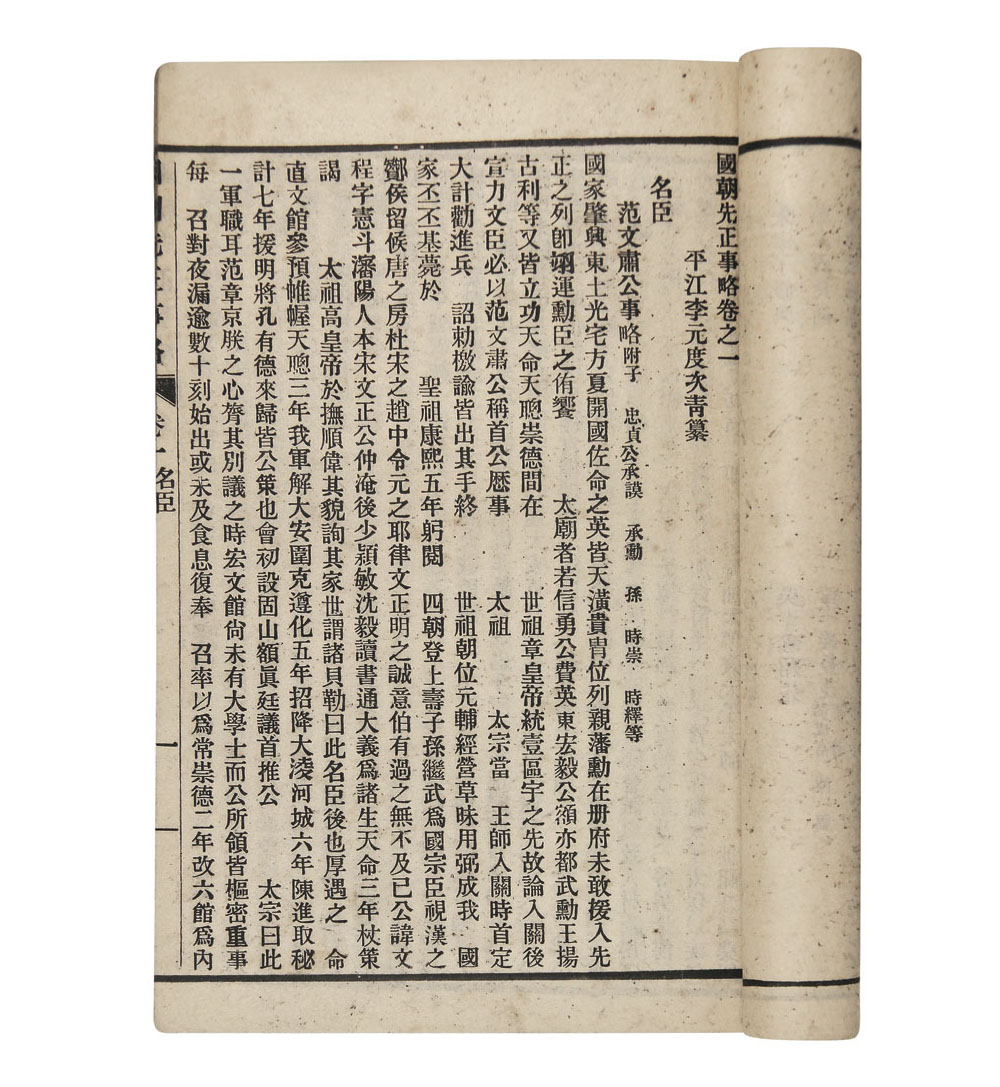 國朝先正事略卷之一
平江李元度次青纂
名臣
范文肅公事略附子 忠貞公承謨 承勳 孫 時崇 時繹等
國家肇興東土光宅方夏開國佐命之英皆天潢貴胄位列親藩勳在册府未敢援入先
正之列卽翊運勳臣之侑饗 太廟者若信勇公費英東宏毅公額亦都武勳王揚
古利等又皆立功天命天聰崇德間在 世祖章皇帝統壹區宇之先故論入關後
宣力文臣必以范文肅公稱首公歷事 太祖 太宗當 王師入關時首定
大計勸進兵 詔勅檄諭皆出其手終 世祖朝位元輔經營草昧用弼成我 國
家丕丕基薨於 聖祖康熙五年躬閱 四朝登上壽子孫繼武爲國宗臣視漢之
酇侯留候唐之房杜宋之趙中令元之耶律文正明之誠意伯有過之無不及已公諱文
程字憲斗瀋陽人本宋文正公仲淹後少穎敏沈毅讀書通大義爲諸生天命三年杖策
謁 太祖高皇帝於撫順偉其貌詢其家世謂諸貝勒曰此名臣後也厚遇之 命
直文館參預帷幄天聰三年我軍解大安圍克遵化五年招降大凌河城六年陳進取秘
計七年援明將孔有德來歸皆公策也會初設固山額眞廷議首推公 太宗曰此
一軍職耳范章京朕之心膂其別議之時宏文館尙未有大學士而公所領皆樞密重事
每 召對夜漏逾數十刻始出或未及食息復奉 召率以爲常崇德二年改六館爲內
卷一名臣
一